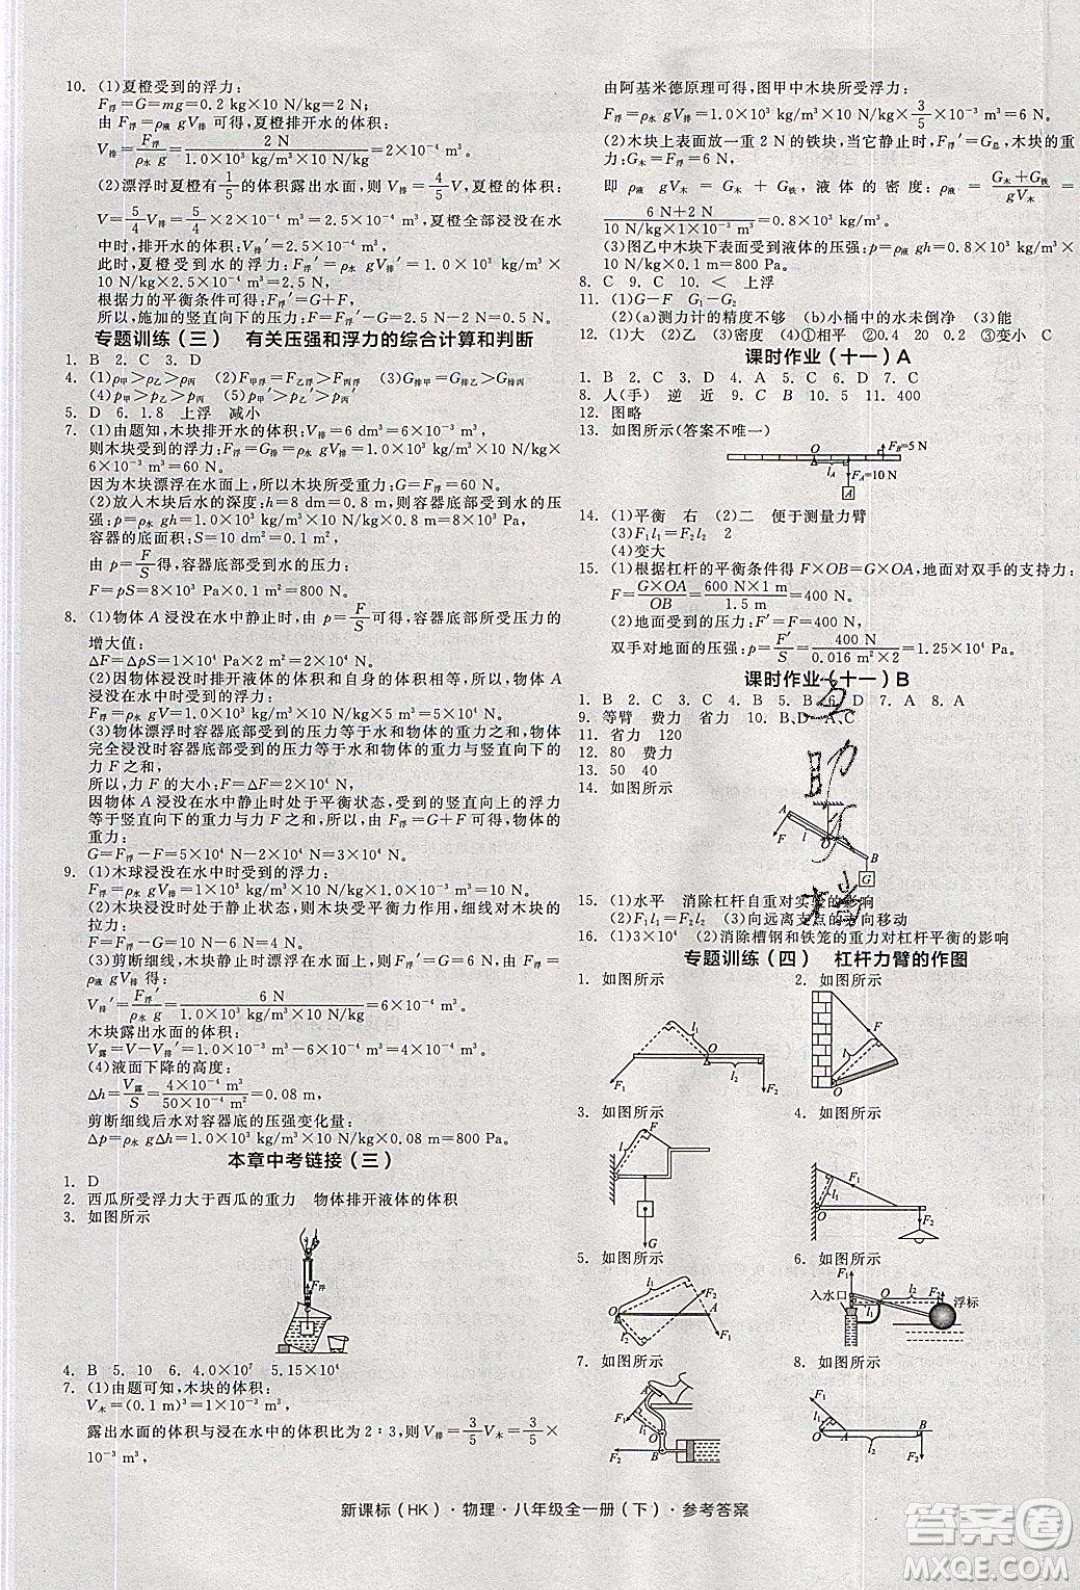 10. (1)夏橙受到的浮力:
F浮=G=mg=0.2 kg×10 N/kg=2 N;
由 F浮=ρ水 gV排 可得,夏橙排开水的体积:
V排=F浮/ρ水 g=2 N/1.0×10³ kg/m³×10 N/kg=2×10⁻⁴ m³。
(2)漂浮时夏橙有1/5的体积露出水面,则 V排=4/5V,夏橙的体积:
V=5/4V排=5/4×2×10⁻⁴ m³=2.5×10⁻⁴ m³,夏橙全部浸没在水
中时,排开水的体积:V排′=2.5×10⁻⁴ m³,
此时,夏橙受到的浮力:F浮′=ρ水 gV排′=1.0×10³ kg/m³×
10 N/kg×2.5×10⁻⁴ m³=2.5 N,
根据力的平衡条件可得:F浮′=G+F,
所以,施加的竖直向下的压力:F=F浮′−G=2.5 N−2 N=0.5 N。
专题训练(三) 有关压强和浮力的综合计算和判断
1. B 2. C 3. D
4. (1)ρ甲>ρ乙>ρ丙 (2)F甲浮=F乙浮=F丙浮 (3)G排甲=G排乙=G排丙
(4)p甲>p乙>p丙 (5)p甲′>p乙′>p丙′
5. D 6. 1.8 上浮 减小
7. (1)由题知,木块排开水的体积:V排=6 dm³=6×10⁻³ m³,
则木块受到的浮力:F浮=ρ水 gV排=1.0×10³ kg/m³×10 N/kg
×6×10⁻³ m³=60 N。
因为木块漂浮在水面上,所以木块所受重力:G=F浮=60 N。
(2)放入木块后水的深度:h=8 dm=0.8 m,则容器底部受到水的压
强:p=ρ水 gh=1.0×10³ kg/m³×10 N/kg×0.8 m=8×10³ Pa,
容器的底面积:S=10 dm²=0.1 m²,
由 p=F/S得,容器底部受到水的压力:
F=pS=8×10³ Pa×0.1 m²=800 N。
8. (1)物体 A 浸没在水中静止时,由 p=F/S可得,容器底部所受压力的
增大值:
ΔF=ΔpS=1×10⁴ Pa×2 m²=2×10⁴ N。
(2)因物体浸没时排开液体的体积和自身的体积相等,所以,物体
浸没在水中时受到的浮力:
F浮=ρ水 gV排=1.0×10³ kg/m³×10 N/kg×5 m³=5×10⁴ N。
(3)物体漂浮时容器底部受到的压力等于水和物体的重力之和,物体
完全浸没时容器底部受到的压力等于水和物体的重力与竖直向下的
力 F 之和,
所以,力 F 的大小:F=ΔF=2×10⁴ N,
因物体 A 浸没在水中静止时处于平衡状态,受到的竖直向上的浮力
等于竖直向下的重力和力 F 之和,即 F浮=G+F,所以,物体的
重力:
G=F浮−F=5×10⁴ N−2×10⁴ N=3×10⁴ N。
9. (1)木球浸没在水中时受到的浮力:
F浮=ρ水 gV排=1.0×10³ kg/m³×10 N/kg×1×10⁻³ m³=10 N。
(2)木块浸没时处于静止状态,则木块受平衡力作用,细线对木块的
拉力:
F=F浮−G=10 N−6 N=4 N。
(3)剪断细线,木块静止时处于漂浮状态,则 F浮′=G=6 N,
由 F浮=ρ水 gV排 得,此时木块排开水的体积:
V排′=F浮′/ρ水 g=6 N/1.0×10³ kg/m³×10 N/kg=6×10⁻⁴ m³,
木块露出水面的体积:
V露=V−V排′=1×10⁻³ m³−6×10⁻⁴ m³=4×10⁻⁴ m³。
(4)液面下降的高度:
Δh=V露/S=4×10⁻⁴ m³/50×10⁻⁴ m²=0.08 m,
剪断细线后水对容器底的压强变化量:
Δp=ρ水 gΔh=1.0×10³ kg/m³×10 N/kg×0.08 m=800 Pa。
本章中考链接(三)
1. D
2. 西瓜所受浮力大于西瓜的重力 物体排开液体的体积
3. 如图所示
F浮
4. B 5. 10 6. 4.0×10⁷ 5.15×10⁴
7. (1)由题可知,木块的体积:
V木=(0.1 m)³=1×10⁻³ m³,
露出水面的体积与浸在水中的体积比为 2∶3,则 V排=3/5V木=3/5×
10⁻³ m³,
由阿基米德原理可得,图甲中木块所受浮力:
F浮=ρ水 gV排=1.0×10³ kg/m³×10 N/kg×3/5×10⁻³ m³=6 N。
(2)木块上表面放一重 2 N 的铁块,当它静止时,F浮′=G总,木块的重
力:G木=F浮=6 N,
即 ρ液 gV木=G木+G铁,液体的密度:ρ液=G木+G铁/gV木=
6 N+2 N/10 N/kg×10⁻³ m³=0.8×10³ kg/m³。
(3)图乙中木块下表面受到液体的压强:p=ρ液 gh=0.8×10³ kg/m³×
10 N/kg×0.1 m=800 Pa。
8. C 9. C 10. < 上浮
11. (1)G−F G₁−G₂
(2)(a)测力计的精度不够 (b)小桶中的水未倒净 (3)能
12. (1)大 (2)乙 (3)密度 (4)①水平 ②0.4 20 0.2 ④大 C
课时作业(十一)A
1. B 2. C 3. D 4. A 5. D 6. D 7. C
8. 人(手) 逆 近 9. C B 10. 5 11. 400
12. 图略
13. 如图所示(答案不唯一)
O F_B=5 N
l_A
F_A=10 N
A
14. (1)平衡 右 (2)二 便于测量力臂
(3)F₁l₁=F₂l₂ 2
(4)变大
15. (1)根据杠杆的平衡条件得 F×OB=G×OA,地面对双手的支持力:
F=G×OA/OB=600 N×1 m/1.5 m=400 N。
(2)地面受到的压力:F′=F=400 N,
双手对地面的压强:p=F′/S=400 N/0.016 m²×2=1.25×10⁴ Pa。
课时作业(十一)B
1. B 2. C 3. C 4. B 5. B 6. D 7. A 8. A
9. 等臂 费力 省力 10. B、D A、C
11. 省力 120
12. 80 费力
13. 50 40
14. 如图所示
A F l O B G
15. (1)水平 消除杠杆自重对实验的影响
(2)F₁l₁=F₂l₂ (3)向远离支点的方向移动
16. (1)3×10⁴ (2)消除槽钢和铁笼的重力对杠杆平衡的影响
专题训练(四) 杠杆力臂的作图
1. 如图所示 2. 如图所示
l₁ O l₂ F₁ F₂
F l O
3. 如图所示 4. 如图所示
F l O G
F₁ l₁ O F₂
5. 如图所示 6. 如图所示
l₁ F₂ O A F₁
入水口 O F浮 浮标
7. 如图所示 8. 如图所示
F₁ O F₂ B
F₁ l₁ O A l₂ B F₂
新课标(HK)·物理·八年级全一册(下)·参考答案
互助文档
答案圈
MXQE.COM